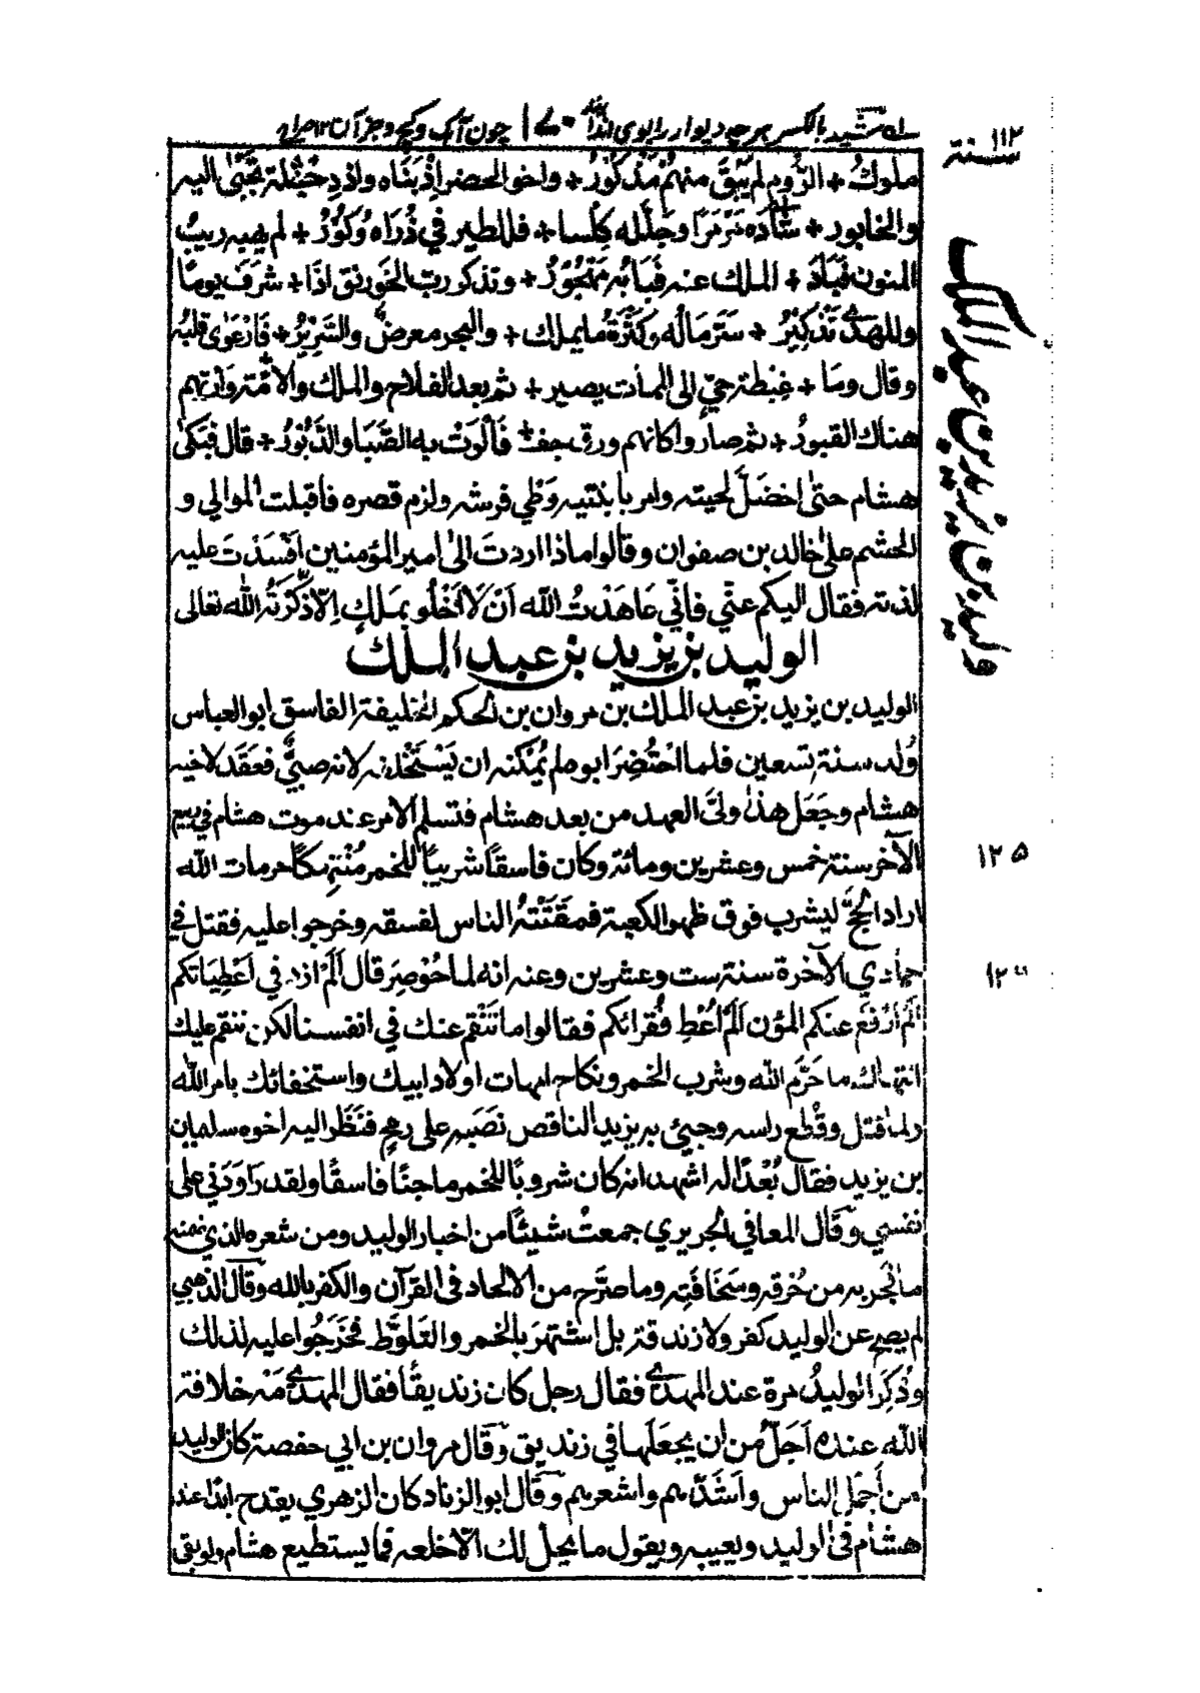 ملوكُ + الرُّوم لم يَبْقَ منهم مَذْكُورُ + واخو الحضر اذْ بَنَاه واذ دِجْلة تُجْبَى اليه
والخابور + شَادَه مَرْمَرًا وجَلَّله كِلْسا + فللطير في ذُرَاه وُكُوْرُ + لم يهبه ريبُ
المنون فَبَادَ + الملك عنه فَبَابُه مَهْجُوْرُ + وتذكر رب الخَوَرنق اذَا + شَرَفَ يومًا
وللهدى تَذْكِيْرُ + سَرَّ مَالُه وكَثْرَةُ ما يملك + والبحر معرضٌ والسَّرِيْرُ + فَارْعَوٰى قلبُه
وقال ومَا + غِبْطة حيٍّ الى الممات يصير + ثم بعد الفلاح والملك والامّة وَارتهم
هناك القبورُ + ثم صاروا كانهم ورق جف + فَاَلْوَتْ به الصَّبَا والدَّبُوْرُ + قال فبَكىٰ
هشام حتىٰ اخضَلَّ لحيته وامر بابنتيه وَطْي فرشه ولزم قصره فاقبلت الموالي و
الحشم علىٰ خالد بن صفوان وقالوا ماذا اردتَ الىٰ امير المؤمنين اَفْسَدْتَ عليه
لذته فقال اليكم عنّي فانّي عَاهَدْتُ الله اَنْ لَا اَخْلُو بمَلكٍ اِلَّا ذَكَّرْتُه الله تعالى
الوليد بن يزيد بن عبد الملك
الوليد بن يزيد بن عبد الملك بن مروان بن الحكم الخليفة الفاسق ابو العباس
وُلد سنة تسعين فلما احْتُضِرَ ابوه لم يُمْكنه ان يَسْتَخْلفه لانه صبيٌّ فعَقَد لاخيه
هشام وجَعَل هذا وليَّ العهد من بعد هشام فتسلم الامر عند موت هشام في ربيع
الآخر سنة خمس وعشرين ومائة وكان فاسقًا شريبًا للخمر مُنْتهكًا حرمات الله
اراد الحجَّ ليشرب فوق ظهر الكعبة فمقَتَتْهُ الناس لفسقه وخرجوا عليه فقتل في
جمادي الآخرة سنة ست وعشرين وعنه انه لما حُوْصِرَ قال اَلَمْ ازد في اَعْطِيَاتكم
اَلَمْ اَرْفع عنكم المُؤن اَلَمْ اُعْطِ فُقَرائكم فقالوا ما نَنْقم عنك في انفسنا لكن ننقم عليك
انتهاك ما حَرَّم الله وشرب الخمر ونكاح امهات اولاد ابيك واستخفائك بامر الله
ولما قتل وقُطع راسه وجيئ به يزيد الناقص نَصَبه على رمحٍ فنَظَر اليه اخوه سلمان
بن يزيد فقال بُعْدًا له اشهد انه كان شروبًا للخمر ماجنًا فاسقًا ولقد رَاوَدَني على
نفسي وقال المعافى الجريري جمعتُ شيئًا من اخبار الوليد ومن شعره الذي ضمنه
ما فجر به من خُرقه وسَخَافَتِه وما صرَّح من الالحاد في القرآن والكفر بالله وقال الذهبي
لم يصح عن الوليد كفر ولا زندقة بل اشتهَرَ بالخمر والتَلَوَّط فخَرَجُوا عليه لذلك
وذُكِرَ الوليدُ مرة عند المهدي فقال رجل كان زنديقًا فقال المهدي مَهْ خلافة
الله عنده اَجَلُّ من ان يجعَلَها في زنديق وقال مروان بن ابي حفصة كان الوليد
من اَجمَل الناس واَشَدّهم واشعرهم وقال ابو الزناد كان الزهري يقدح ابدًا عند
هشام في الوليد ويعيبه ويقول ما يحلّ لك الّا خلعه فما يستطيع هشام ولو بقى
سنة ۱۱۲
وليد بن يزيد بن عبد الملك
۱۲۵
۱۲۶